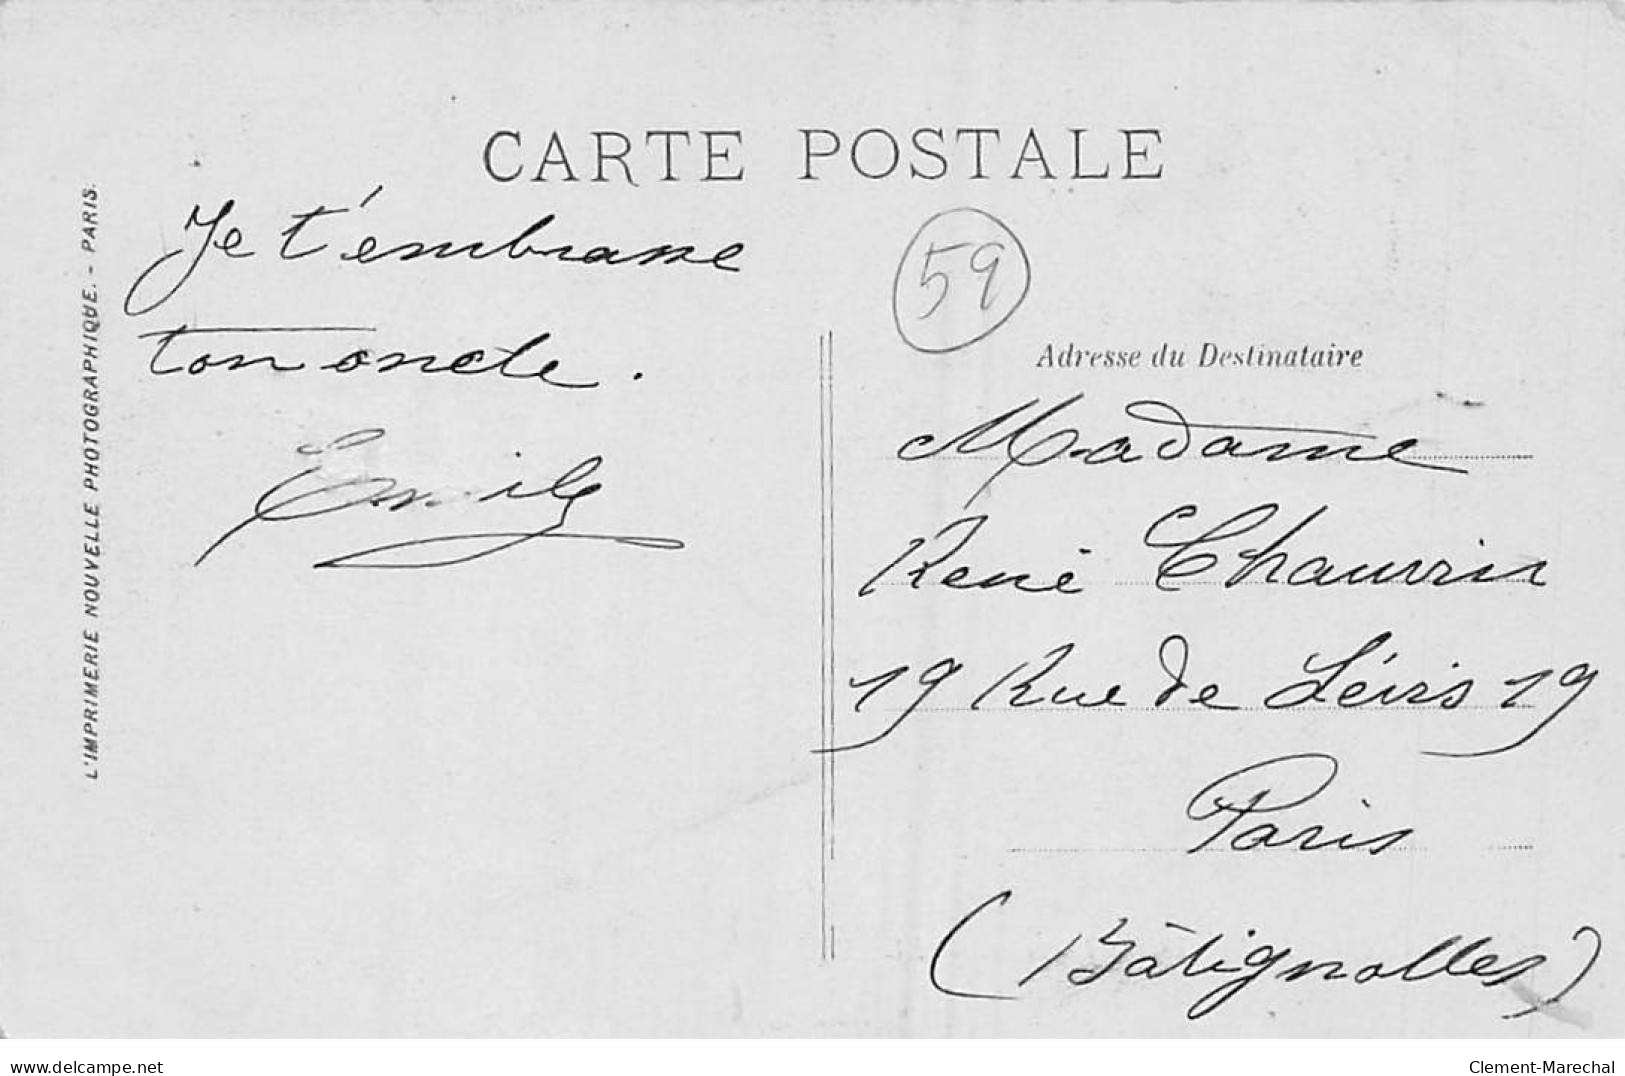 CARTE POSTALE
L'IMPRIMERIE NOUVELLE PHOTOGRAPHIQUE. - PARIS.
Je t'embrasse
ton oncle.
Emile
59
Adresse du Destinataire
Madame
René Chauvin
19 Rue de Lévis 19
Paris
(Bâtignolles)
delcampe.net
Clement-Marechal